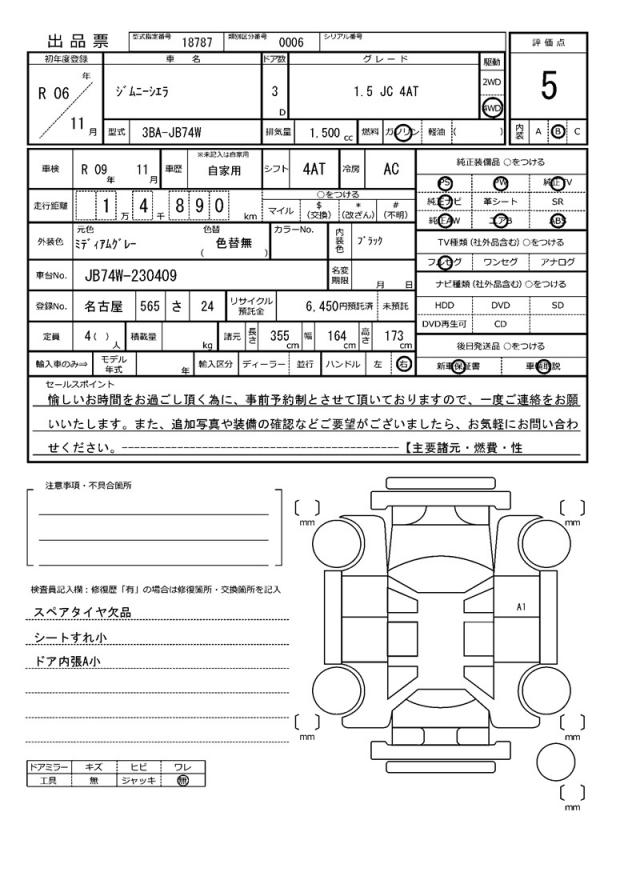 出品票 型式指定番号 18787 類別区分番号 0006 シリアル番号
評価点 5
初年度登録 車名 ドア数 グレード 駆動
R 06 年 11 月 ジムニーシエラ 3 D 1.5 JC 4AT 2WD 4WD
型式 3BA-JB74W 排気量 1.500 cc 燃料 ガソリン 軽油 ( ) 内装 A B C
車検 R 09 年 11 月 車歴 ※未記入は自家用 自家用 シフト 4AT 冷房 AC
純正装備品 ○をつける
PS PW 純正TV
純正ナビ 革シート SR
純正AW エアB ABS
走行距離 1 万 4 千 8 9 0 km ○をつける マイル $ (交換) * (改ざん) # (不明)
外装色 元色 ミディアムグレー 色替 色替無 ( ) カラーNo. 内装色 ブラック
TV種類 (社外品含む) ○をつける
フルセグ ワンセグ アナログ
車台No. JB74W-230409 名変期限 月 日
ナビ種類 (社外品含む) ○をつける
HDD DVD SD
DVD再生可 CD
登録No. 名古屋 565 さ 24 リサイクル預託金 6,450円預託済 未預託
定員 4( ) 人 積載量 kg 諸元 長さ 355 cm 幅 164 cm 高さ 173 cm
後日発送品 ○をつける
新車保証書 車輌取説
輸入車のみ⇒ モデル年式 年 輸入区分 ディーラー 並行 ハンドル 左 右
セールスポイント
愉しいお時間をお過ごし頂く為に、事前予約制とさせて頂いておりますので、一度ご連絡をお願
いいたします。また、追加写真や装備の確認などご要望がございましたら、お気軽にお問い合わ
せください。--------------------------------------------【主要諸元・燃費・性
注意事項・不具合箇所
検査員記入欄：修復歴「有」の場合は修復箇所・交換箇所を記入
スペアタイヤ欠品
シートすれ小
ドア内張A小
ドアミラー キズ ヒビ ワレ
工具 無 ジャッキ 無
[ ] mm
[ ] mm
A1
[ ] mm
[ ] mm
[ ] mm